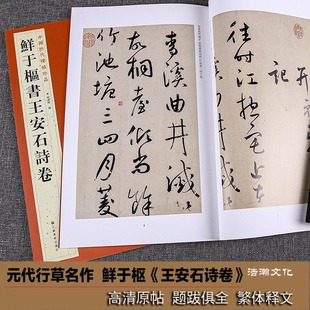 鮮于樞書王安石詩卷
記
往時江揔宅近在
青溪曲井滅
故桐臺傾尚餘
竹池塘三四月菱
元代行草名作 鲜于枢《王安石诗卷》 浩瀚文化
高清原帖 题跋俱全 繁体释文